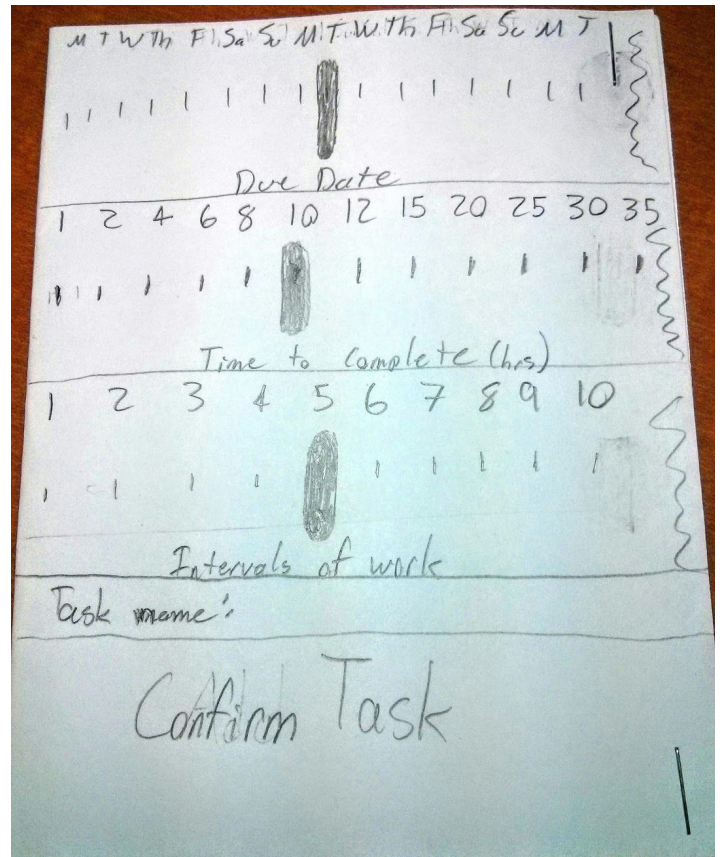 M T W Th F Sa Su M T W Th F Sa Su M T
Due Date
1 2 4 6 8 10 12 15 20 25 30 35
Time to Complete (hrs)
1 2 3 4 5 6 7 8 9 10
Intervals of work
Task name:
Confirm Task